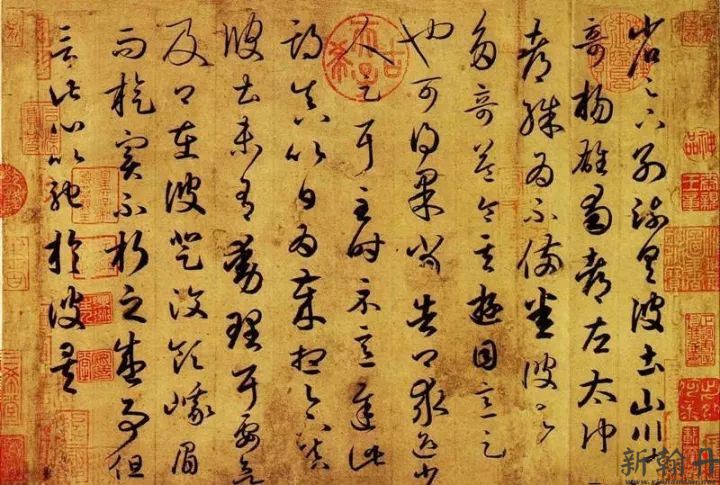 省足下別疏具彼土山川諸
奇揚雄蜀都左太沖
都殊為不備悉彼故
多奇益令其遊目意足
也可得果當告卿求迎少
人足耳至時示意遲此
期真以日為歲想足下鎮
彼土未有動理耳要欲
及卿在彼登汶領峨眉
而旋實不朽之盛事但
言此心以馳於彼矣
古希天子
新翰升